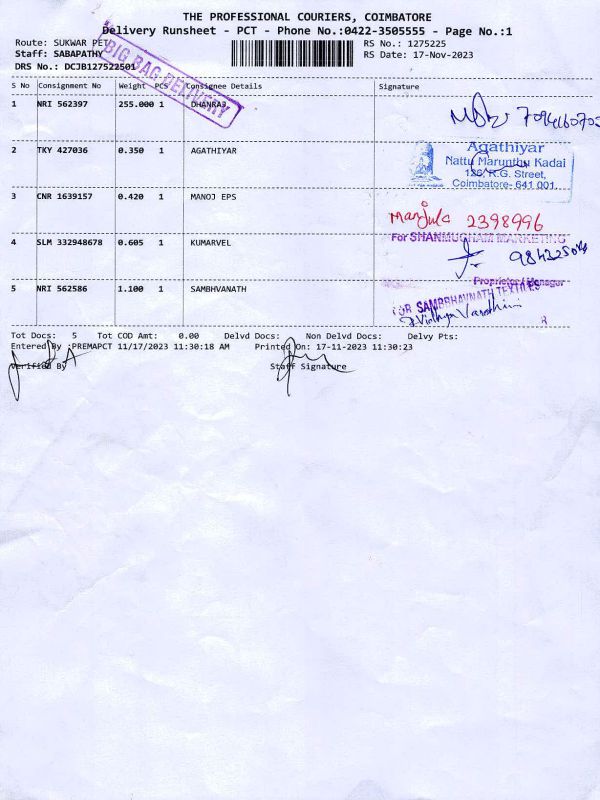 THE PROFESSIONAL COURIERS, COIMBATORE
Delivery Runsheet - PCT - Phone No.:0422-3505555 - Page No.:1
Route: SUKWAR PET
RS No.: 1275225
Staff: SABAPATHY
RS Date: 17-Nov-2023
DRS No.: DCJB127522501
BIG BAG DELIVERY
S No Consignment No Weight PCS Consignee Details Signature
1 NRI 562397 255.000 1 DHANRAJ
2 TKY 427036 0.350 1 AGATHIYAR
Agathiyar
Nattu Marunthu Kadai
126, R.G. Street,
Coimbatore- 641 001.
3 CNR 1639157 0.420 1 MANOJ EPS
Manjula 2398996
For SHANMUGHAM MARKETING
4 SLM 332948678 0.605 1 KUMARVEL
Proprietor / Manager
5 NRI 562586 1.100 1 SAMBHVANATH
FOR SAMBRHAVNATH TEXTILES
Tot Docs: 5 Tot COD Amt: 0.00 Delvd Docs: Non Delvd Docs: Delvy Pts:
Entered By :PREMAPCT 11/17/2023 11:30:18 AM Printed On: 17-11-2023 11:30:23
Verified By Staff Signature